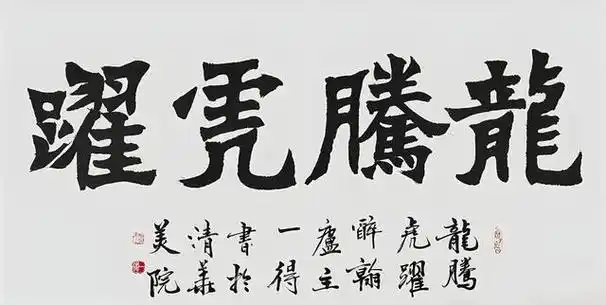 龍騰虎躍
龍騰
虎躍
醉翰
廬主
一得
書於
清華
美院